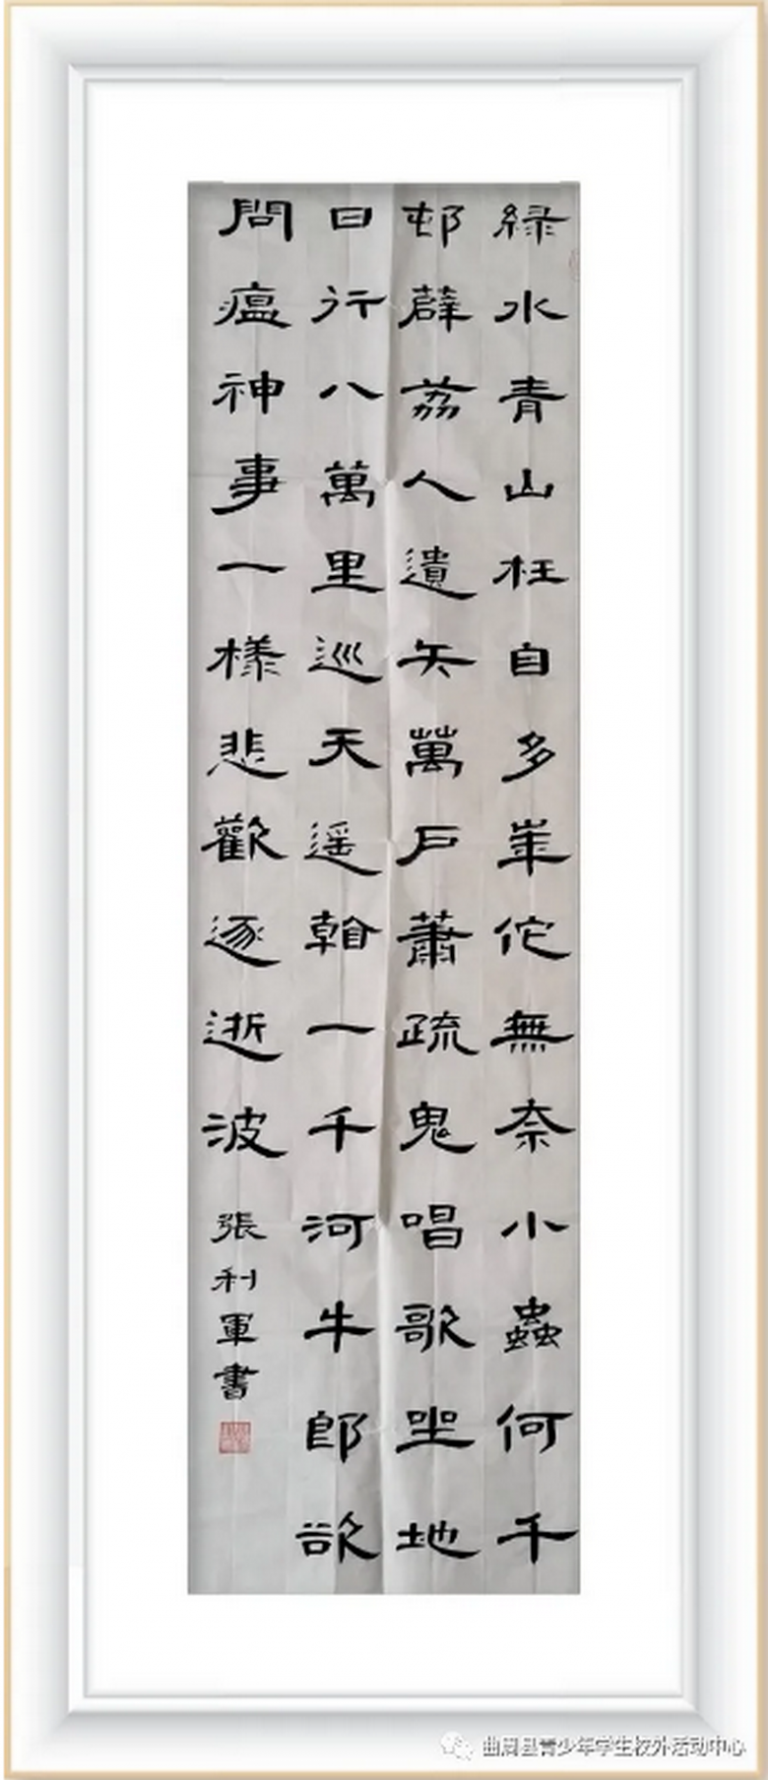 緑水青山枉自多華佗無奈小蟲何千
邨薜荔人遺矢萬戶蕭疏鬼唱歌坐地
日行八萬里巡天遥看一千河牛郎欲
問瘟神事一樣悲歡逐逝波
張利軍書
曲周县青少年学生校外活动中心